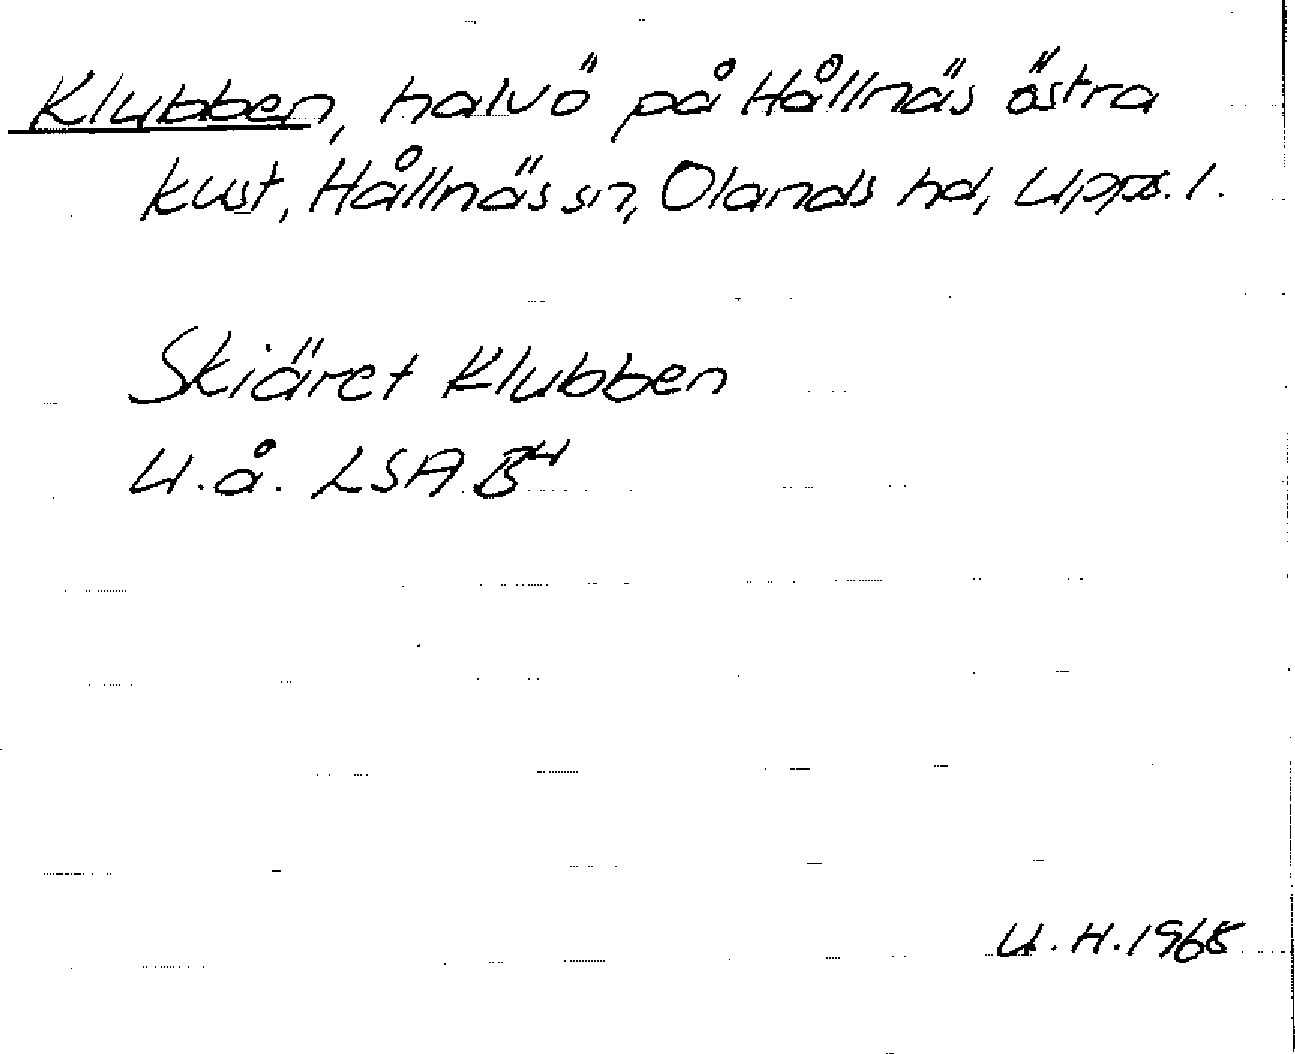 Klubben, halvö på Hållnäs östra
kust, Hållnäs sn, Olands hd, Upps. l.
Skiäret Klubben
U.å. LSA B⁴
U.H. 1968